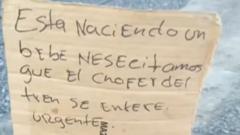 Esta Naciendo un
bebe Nesecitamos
que el chofer del
tren se entere.
urgente